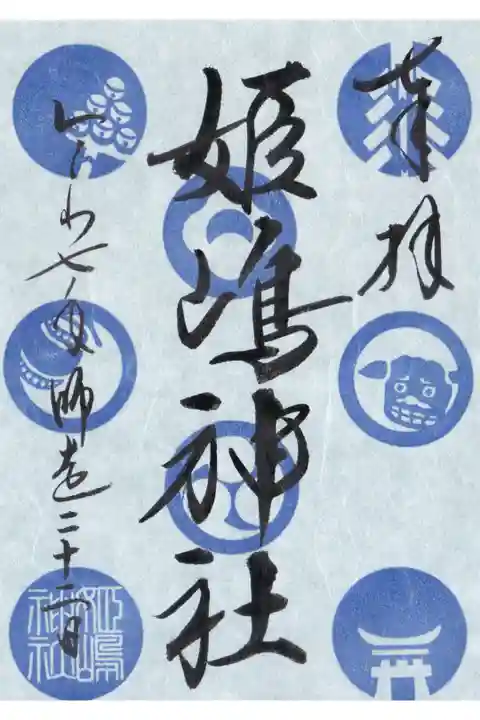 奉拝
姫嶋神社
令和七年師走二十二日
姫嶋神社